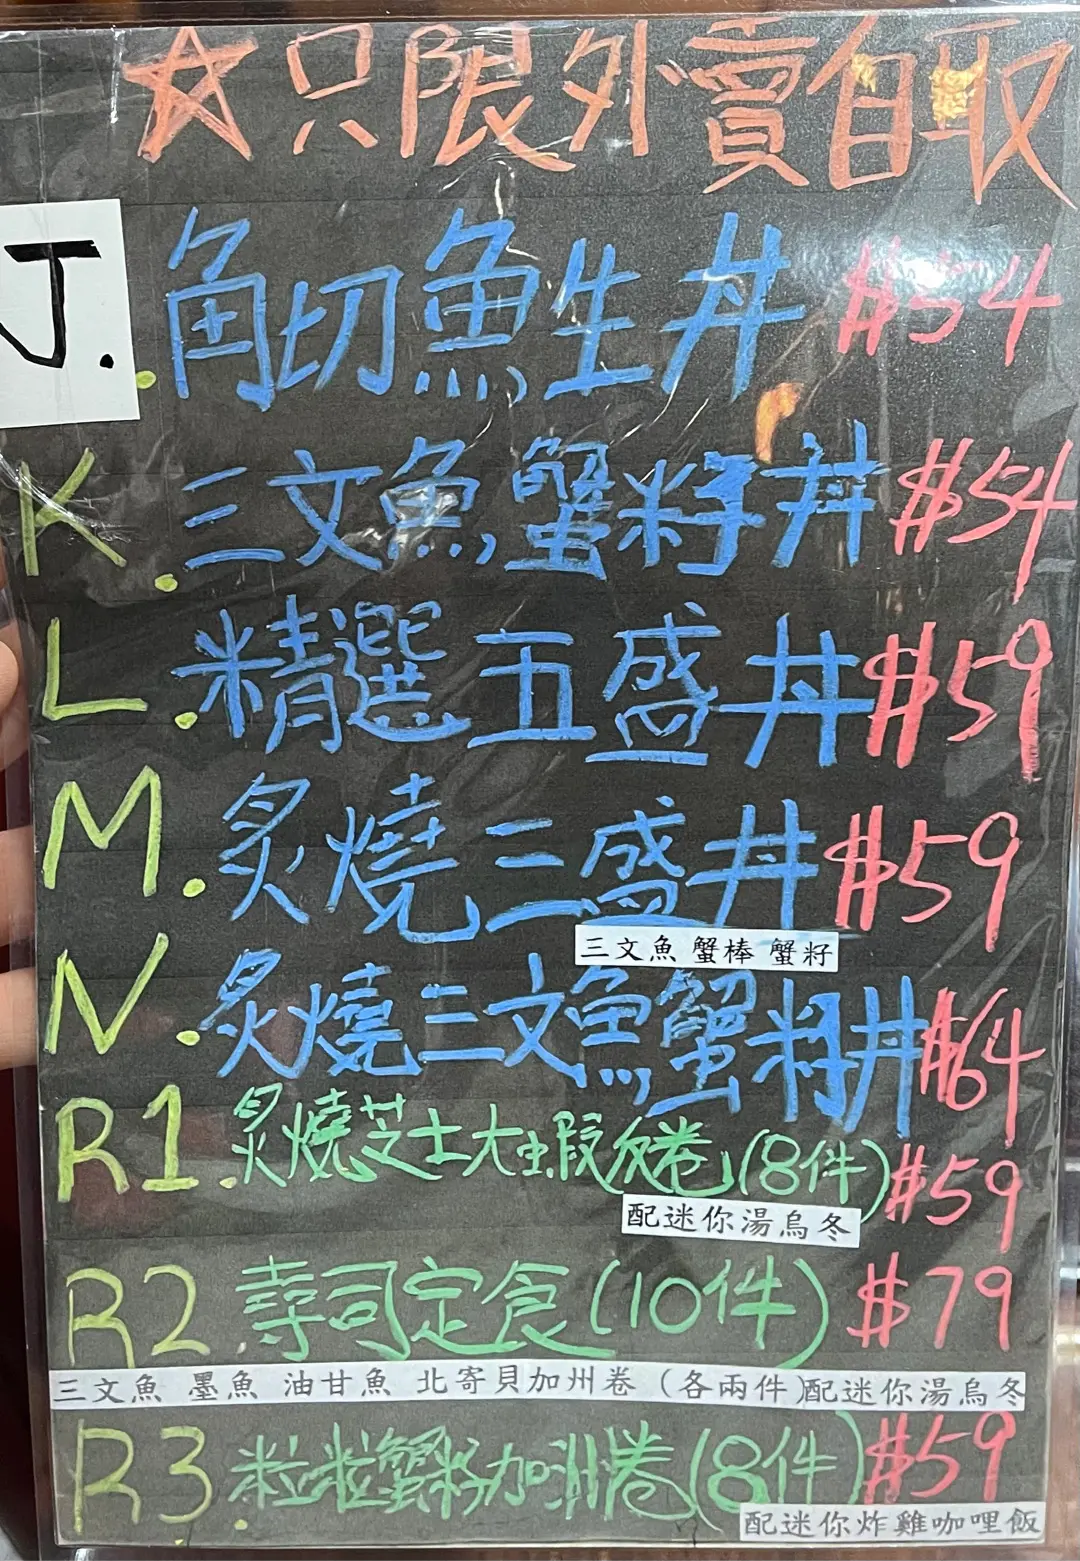 ☆只限外賣自取
J. 角切魚生丼 $54
K. 三文魚蟹籽丼 $54
L. 精選五盛丼 $59
M. 炙燒三盛丼 $59
三文魚 蟹棒 蟹籽
N. 炙燒三文魚蟹籽丼 $64
R1. 炙燒芝士大蝦反卷 (8件) $59
配迷你湯烏冬
R2 壽司定食 (10件) $79
三文魚 墨魚 油甘魚 北寄貝加州卷 (各兩件)配迷你湯烏冬
R3. 粒粒蟹籽加州卷 (8件) $59
配迷你炸雞咖哩飯